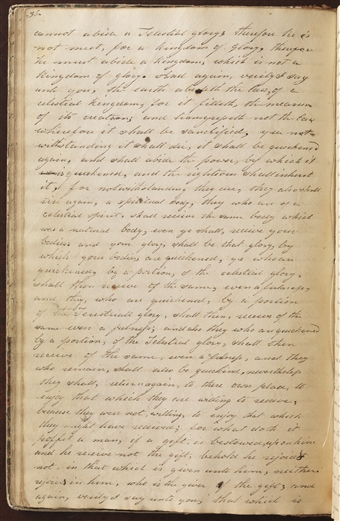 36
cannot abide a Telestial glory, therefore he is
not meet, for a kingdom of glory, therefore
he must abide a kingdom, which is not a
kingdom of glory. And again, verily I say
unto you, the earth abideth the law, of a
celestial kingdom, for it filleth the measure
of its creation, and transgresseth not the law
wherefore it shall be sanctified, yea not
withstanding it shall die, it shall be quickened
again, and shall abide the power, by which it
is quickened, and the righteous shall inherit
it, for notwithstanding they die, they also shall
rise again, a spiritual body, they who are of a
celestial spirit, shall receive the same body which
was a natural body, even ye shall, receive your
bodies, and your glory, shall be that glory, by
which your bodies are quickened, ye who are
quickened, by a portion, of the celestial glory,
shall then receive of the same, even a fulness,
and they, who are quickened, by a portion
of the terestrial glory, shall then, receive of the
same even a fulness, and also they who are quickened
by a portion, of the Telestial glory, shall then
receive of the same even a fulness, and they
who remain, shall also be quickened, nevertheless
they shall, return again, to there own place, to
enjoy that which they are willing to receive,
because they were not, willing, to enjoy that which
they might have received; for what doth it
profit a man, if a gift is bestowed, upon him
and he receive not the gift, behold he rejoices
not in that which is given unto him, neither
rejoices in him, who is the giver of the gift, and
again, verily I say unto you, that which is